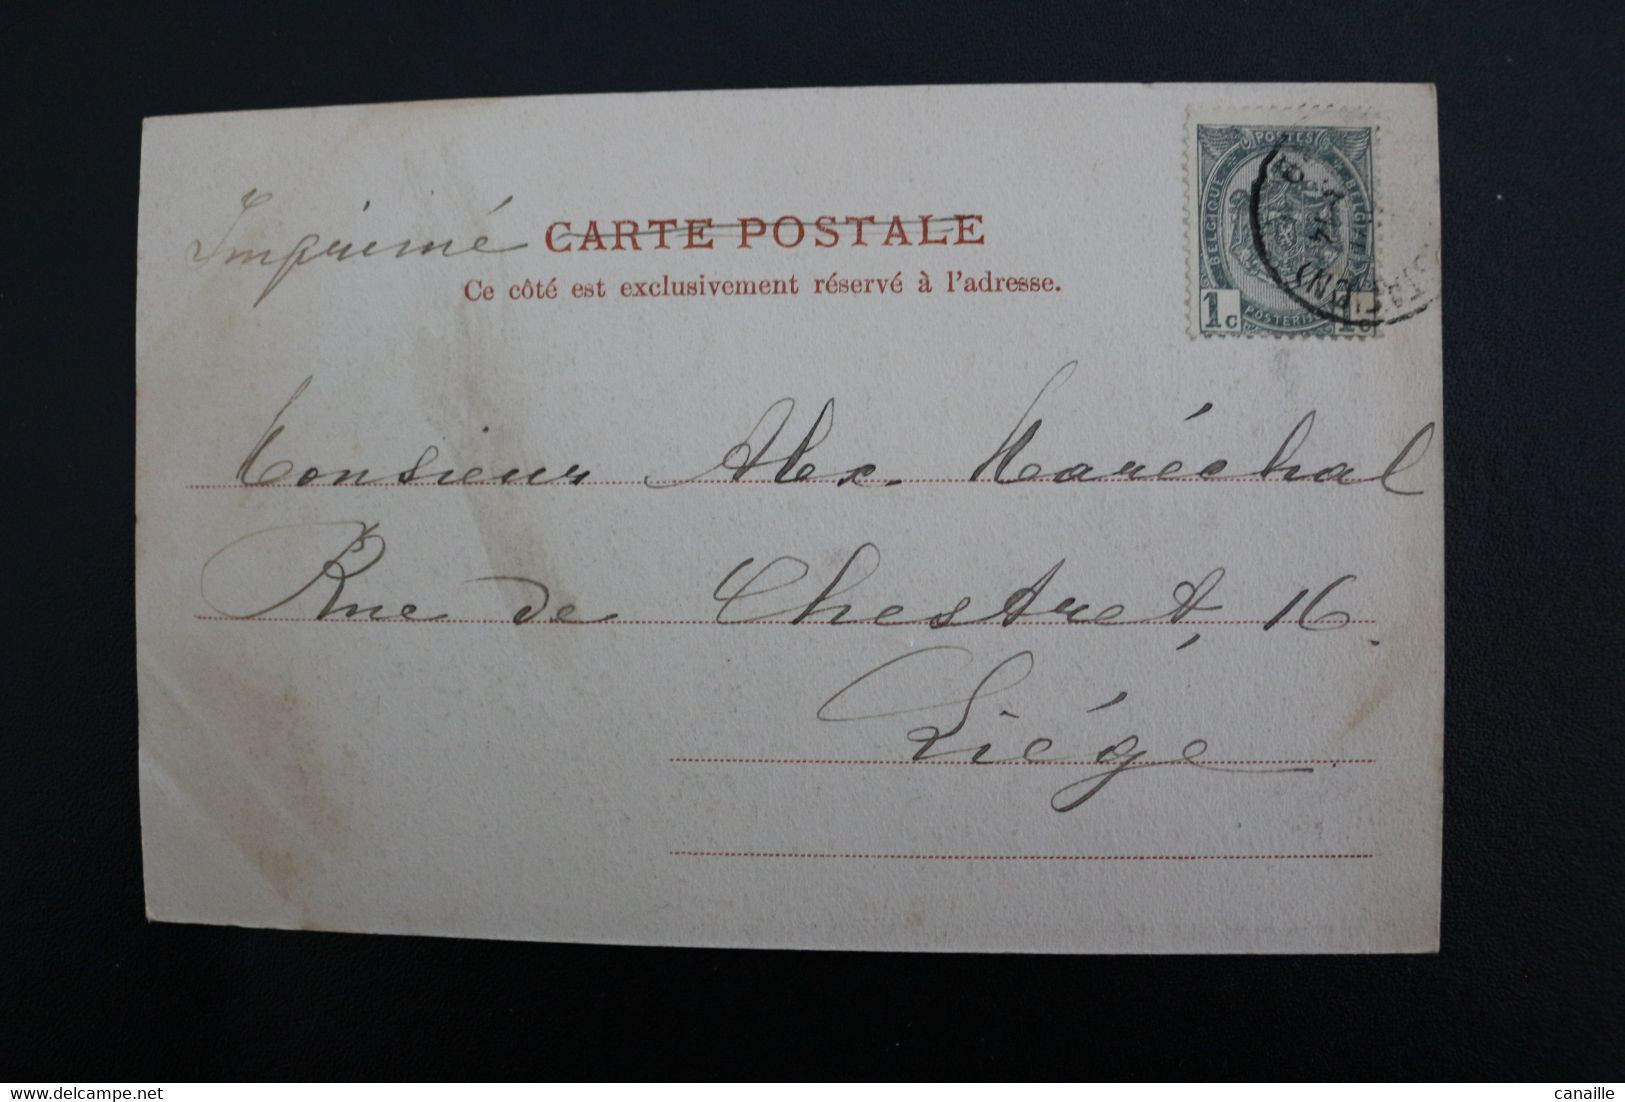 Imprimé
CARTE POSTALE
Ce côté est exclusivement réservé à l'adresse.
POSTES
BELGIQUE
BELGIË
POSTERIJEN
1c 1c
Monsieur Alex. Maréchal
Rue de Chestret, 16.
Liége
delcampe.net
canaille